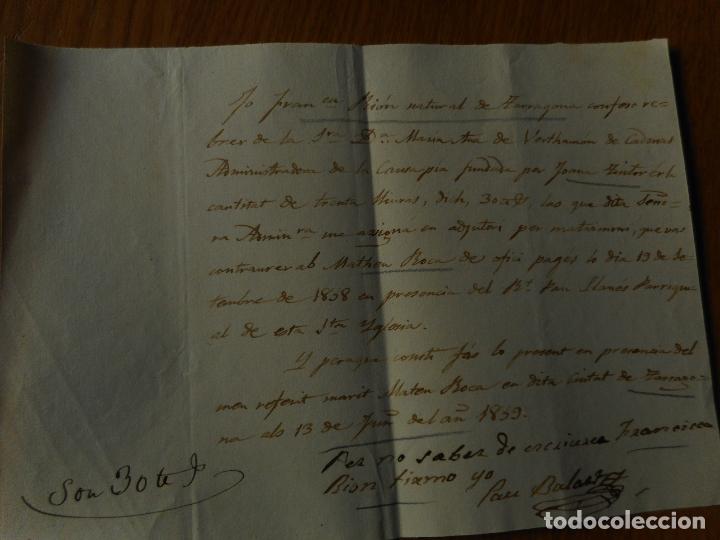 Jo Fran.ca Rión natural de Tarragona confeso re-
brer de la Sra. Da. Maria Ana de Verthamón de Cadenas
Administradora de la Causa pia fundada per Joana
cantitat de trenta lliuras, dich, 30 las que dita Seño-
ra Admin.ra me assigna en adjutori per matrimoni, que vas
contraurer ab Matheu Roca de ofici pages lo dia 19 de Se-
tembre de 1858 en presencia del Rt. Pau Llanes Parroqui-
al de esta Sta. Yglesia.
Y peraque consti fás lo present en presencia del
meu referit marit Mateu Roca en dita Ciutat de Tarrago-
na als 13 de Juny del añ 1859.
Per no saber de escriurer Francisca
Rion firmo yo
Pau
Son 30
todocoleccion.net